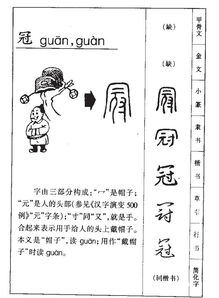 冠 guān, guàn
字由三部分构成:“冖”是帽子;
“元”是人的头部(参见《汉字演变500
例》“元”字条);“寸”同“又”,就是手。
合起来表示用于给人的头上戴帽子。
本义是“帽子”,读 guān;用作“戴帽
子”时读 guàn。
(缺)
(缺)
冠
冠
冠
冠
冠
(同楷书)
甲骨文
金文
小篆
隶书
楷书
草书
行书
简化字